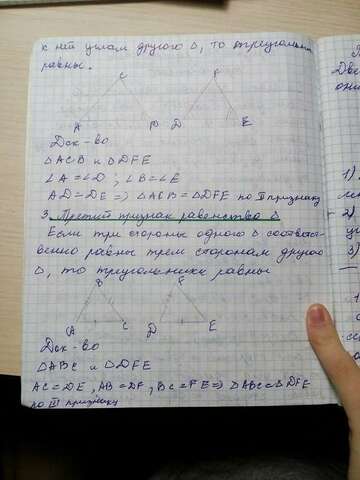 к ней углам другого Δ, то треугольники
равны.
C
F
A
B
D
E
Док-во
ΔACB и ΔDFE
∠A=∠D ; ∠B=∠E
AD=DE => ΔACB=ΔDFE по II признаку
3. Третий признак равенства Δ
Если три стороны одного Δ соответст-
венно равны трем сторонам другого
Δ, то треугольники равны
B
F
A
C
D
E
Док-во
ΔABC и ΔDFE
AC=DE, AB=DF, BC=FE => ΔABC=ΔDFE
по III признаку
1)
2)
3)